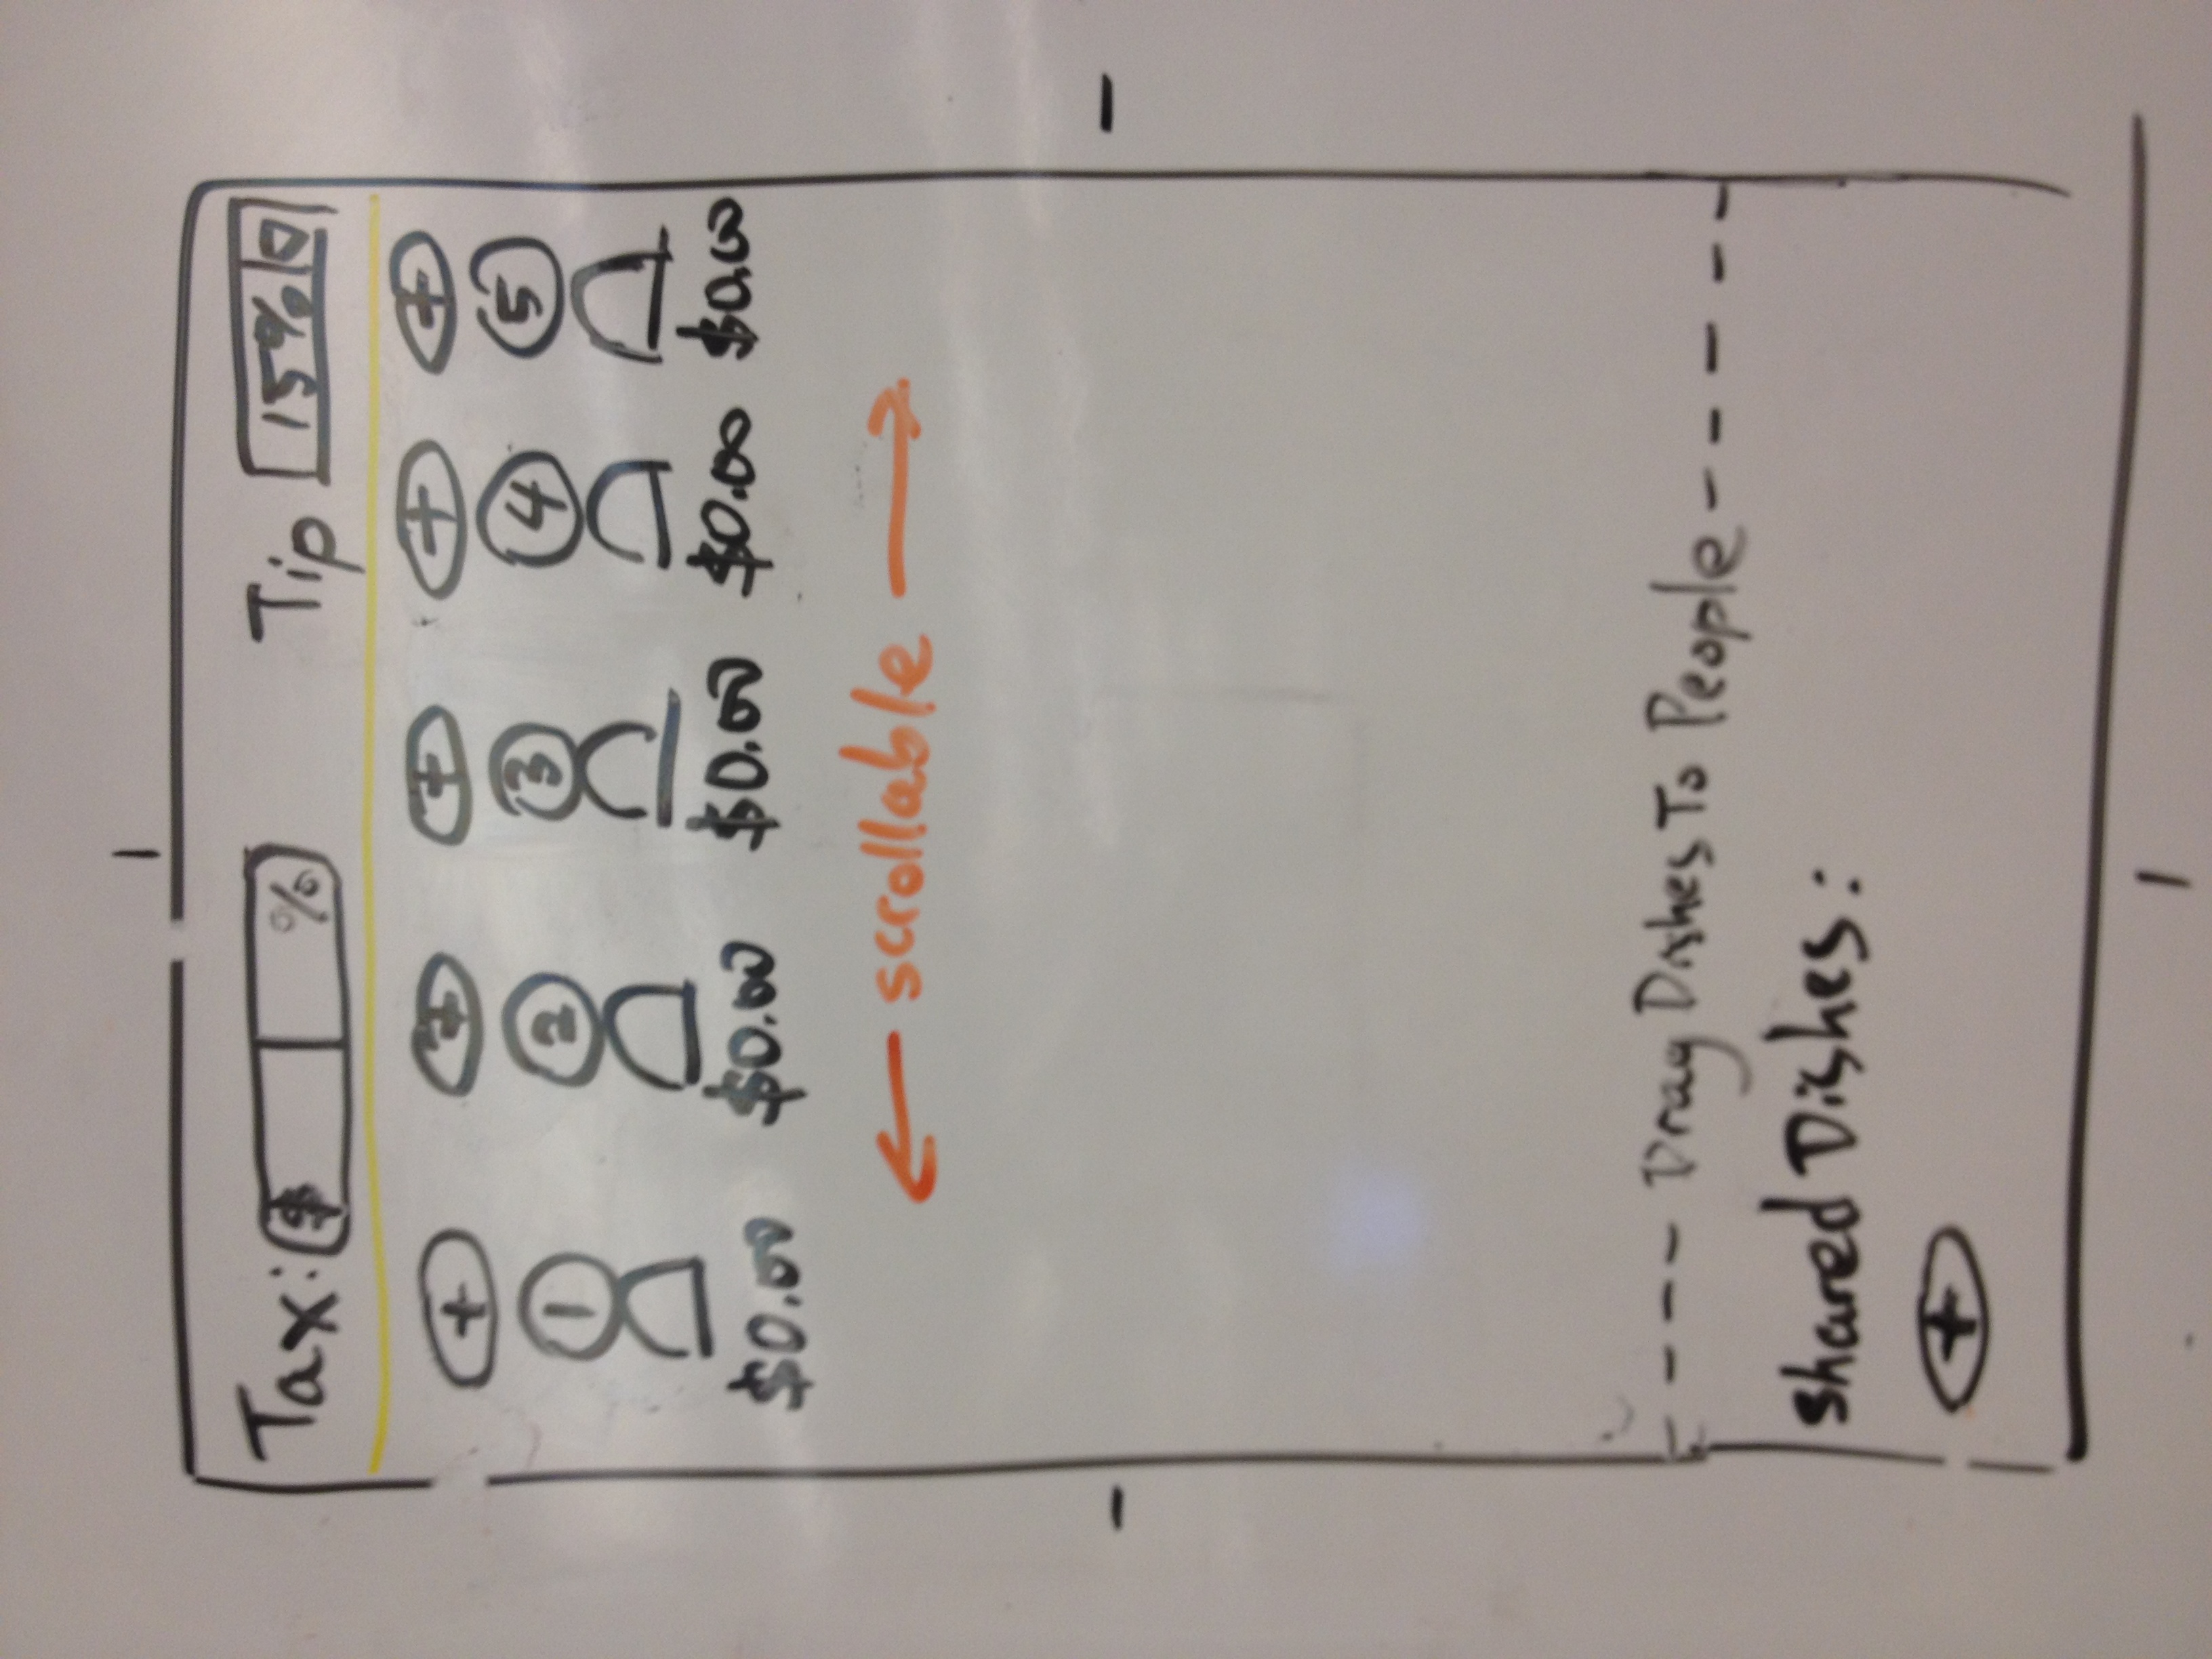 Tax: $ % Tip 15%
+ + + + +
1 2 3 4 5
$0.00 $0.00 $0.00 $0.00 $0.00
scrollable
Drag Dishes To People
Shared Dishes:
+